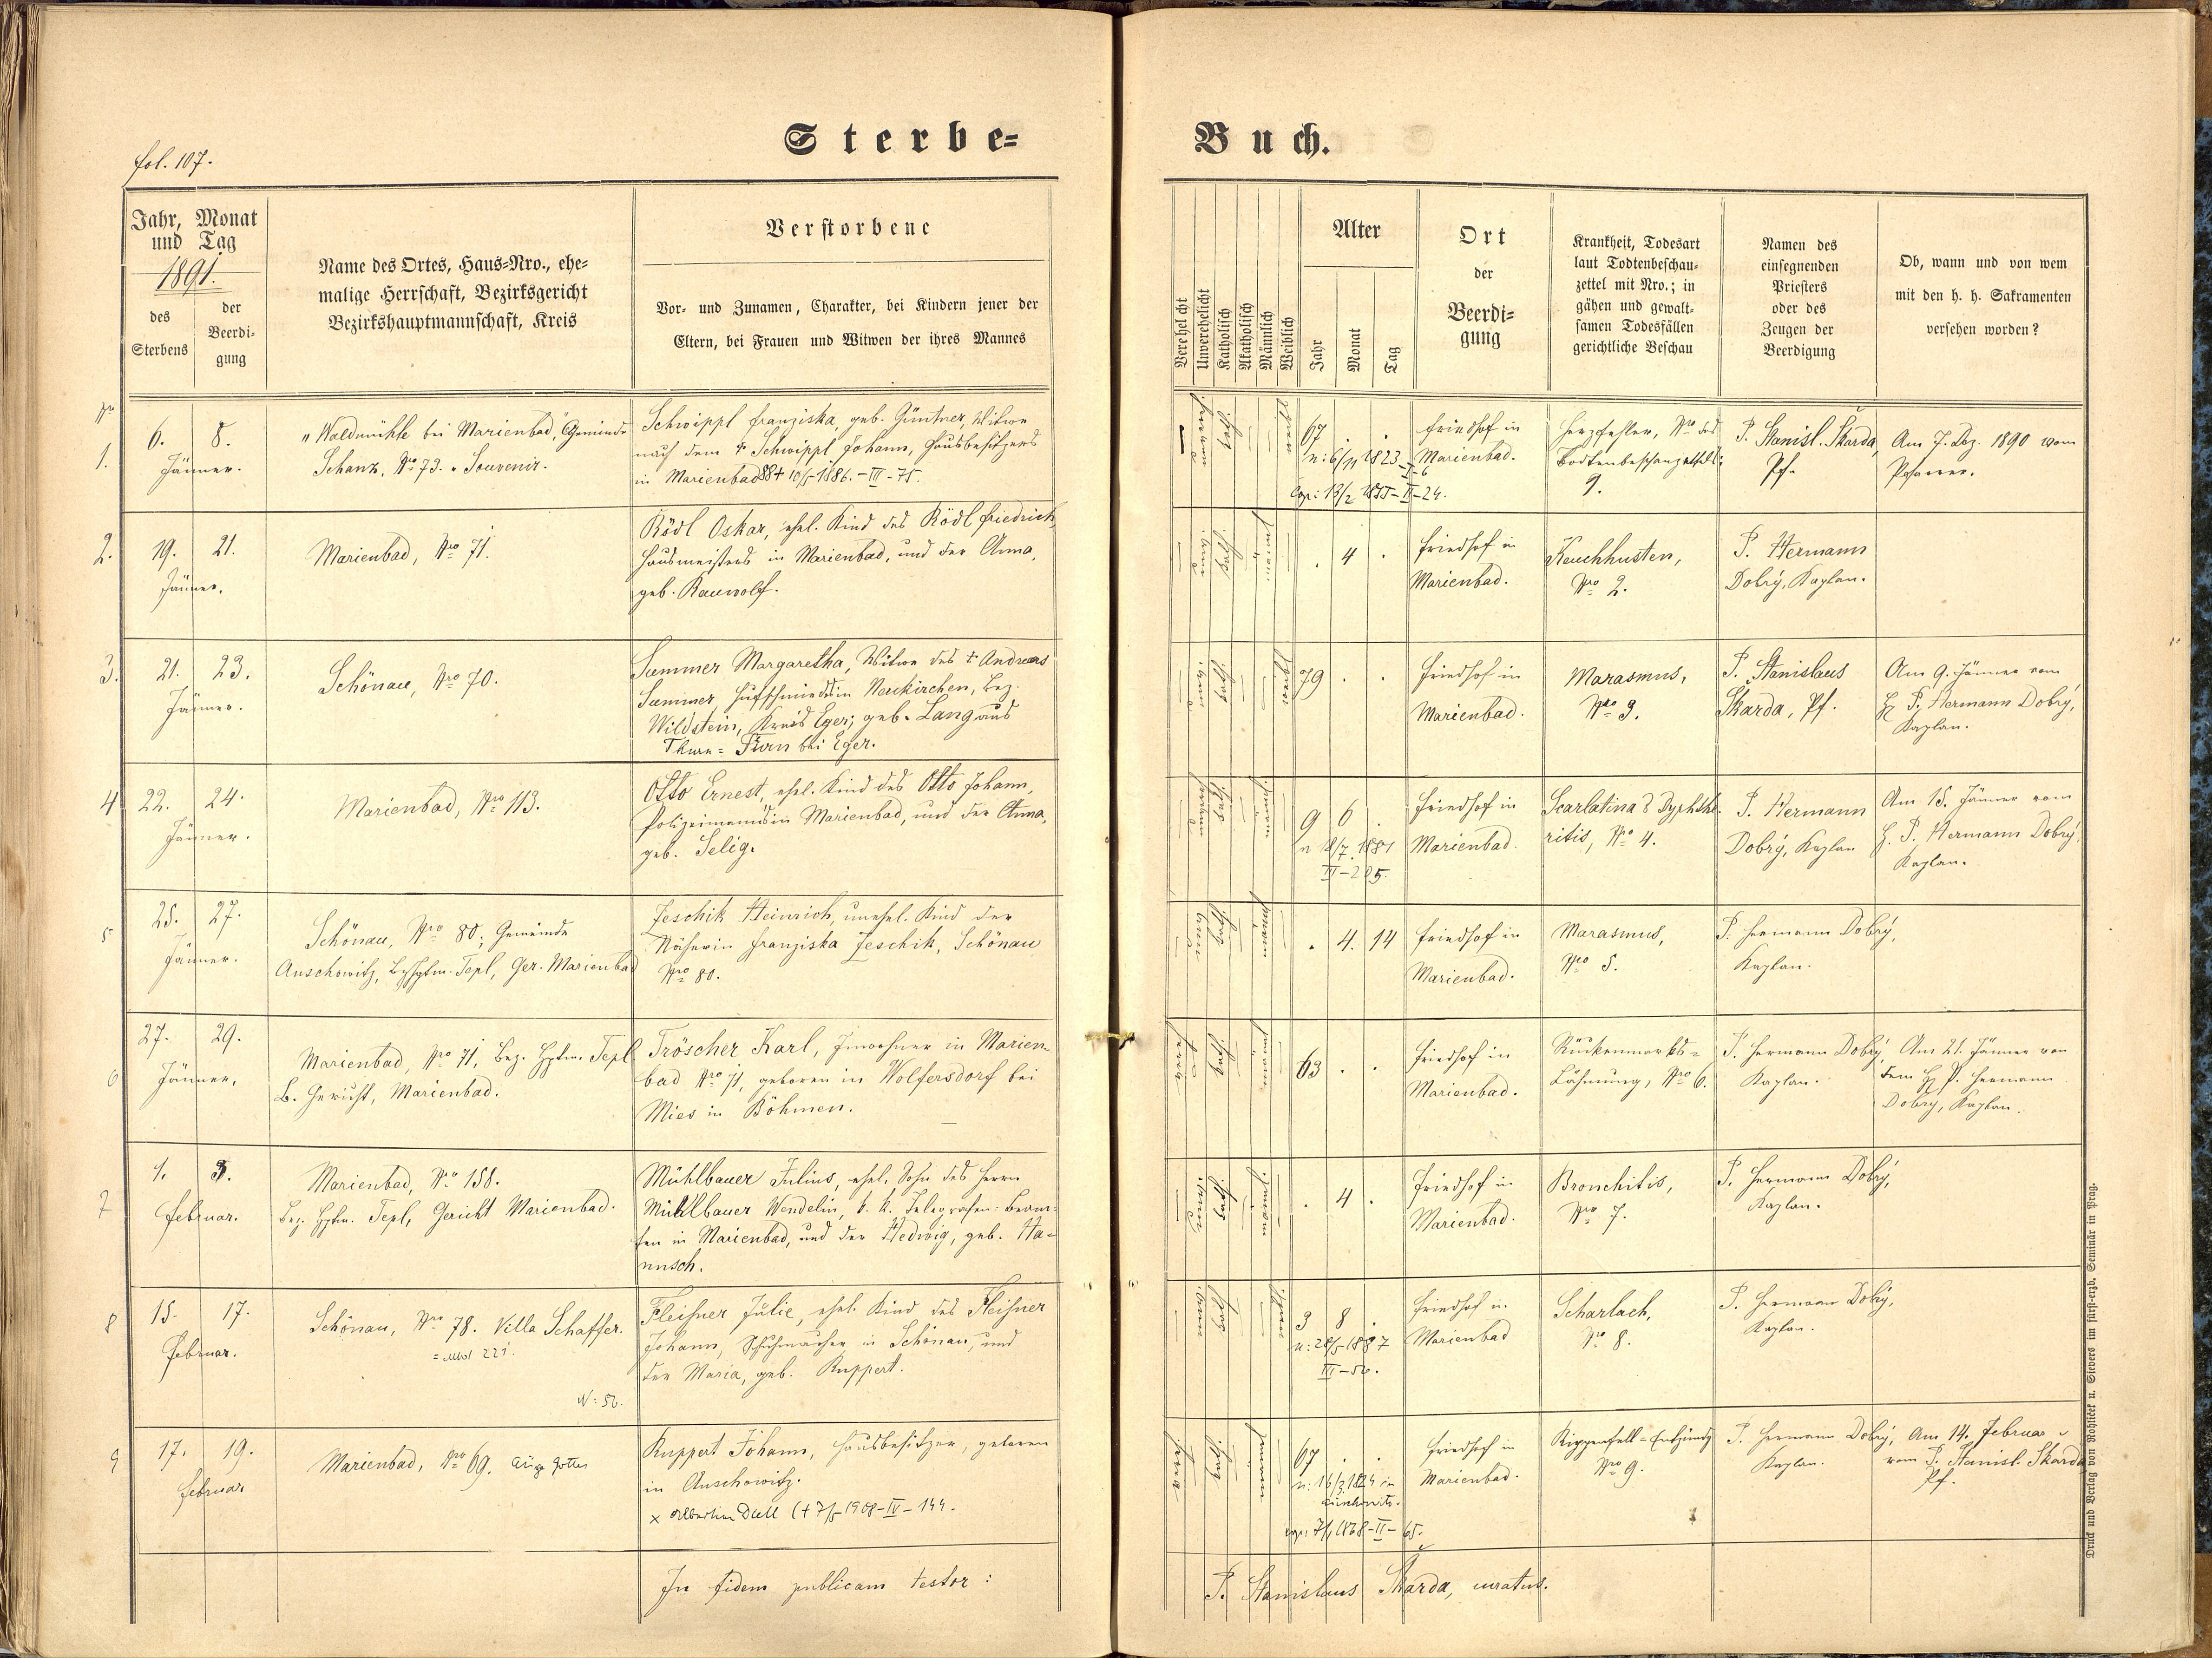 fol. 107.
Sterbe=
Buch.
Jahr, Monat
und Tag
1891.
des
Sterbens
der
Beerdi-
gung
Name des Ortes, Haus=Nro., ehe=
malige Herrschaft, Bezirksgericht
Bezirkshauptmannschaft, Kreis
Verstorbene
Vor- und Zunamen, Charakter, bei Kindern jener der
Eltern, bei Frauen und Witwen der ihres Mannes
Verehelicht
Unverehelicht
Katholisch
Akatholisch
Männlich
Weiblich
Alter
Jahr
Monat
Tag
Ort
der
Beerdi=
gung
Krankheit, Todesart
laut Todtenbeschau=
zettel mit Nro.; in
gähen und gewalt=
samen Todesfällen
gerichtliche Beschau
Namen des
einsegnenden
Priesters
oder des
Zeugen der
Beerdigung
Ob, wann und von wem
mit den h. h. Sakramenten
versehen worden?
Nro
1.
6. 8.
Jänner.
"Waldmühle bei Marienbad", Gemeinde
Schanz, Nro 73. "Souvenir.
Schwippl Franziska, geb. Güntner, Witwe
nach dem † Schwippl Johann, Hausbesitzers
in Marienbad 884 10/5 1886. - III - 75.
67 . .
n: 6/11 1823 - I - 6
Cop: 13/2 1855 - II - 24.
Friedhof in
Marienbad.
Herzfehler, Nro des
9.
P. Stanisl. Škarda,
Pf.
Am 7. Dez. 1890 vom
Pfarrer.
2.
19. 21.
Jänner.
Marienbad, Nro 71.
Rödl Oskar, ehel. Kind des Rödl Friedrich,
Hausmeisters in Marienbad, und der Anna,
geb. Rauwolf.
. 4 .
Friedhof in
Marienbad.
Keuchhusten,
Nro 2.
P. Hermann
Dobrý, Kaplan.
3.
21. 23.
Jänner.
Schönau, Nro 70.
Summer Margaretha, Witwe des † Andreas
Summer Hufschmieds in Neukirchen, Bez.
Wildstein, Kreis Eger; geb. Lang aus
Thurn = bei Eger.
79 . .
Friedhof in
Marienbad.
Marasmus,
Nro 3.
P. Stanislaus
Škarda, Pf.
Am 9. Jänner vom
H P. Hermann Dobrý,
Kaplan.
4
22. 24.
Jänner.
Marienbad, Nro 113.
Otto Ernest, ehel. Kind des Otto Johann,
Polizeimanns in Marienbad, und der Anna,
geb. Selig.
9 6 .
n 18/7. 1881
II - 205.
Friedhof in
Marienbad.
Scarlatina & Dyphthe-
ritis, Nro 4.
P. Hermann
Dobrý, Kaplan
Am 15. Jänner vom
H. P. Hermann Dobrý
Kaplan.
5
25. 27.
Jänner.
Schönau, Nro 80; Gemeinde
Auschowitz, Bzhptm. Tepl, Ger. Marienbad
Jeschik Heinrich, unehel. Kind der
Näherin Franziska Jeschik, Schönau
Nro 80.
. 4. 14
Friedhof in
Marienbad.
Marasmus,
Nro 5.
P. Hermann Dobrý,
Kaplan.
6
27. 29.
Jänner.
Marienbad, Nro 71, Bez. Hptm. Tepl
B. Gericht, Marienbad.
Tröscher Karl, Inwohner in Marien-
bad Nro 71, geboren in Wolfersdorf bei
Mies in Böhmen.
63 . .
Friedhof in
Marienbad.
Rückenmarks=
Lähmung, Nro 6.
P. Hermann Dobrý,
Kaplan.
Am 21. Jänner von
dem H P. Hermann
Dobrý, Kaplan.
7
1. 3.
Februar.
Marienbad, Nro 158.
Bez. Hptm. Tepl, Gericht Marienbad.
Mühlbauer Julius, ehel. Sohn des Herrn
Mühlbauer Wendelin, k. k. Telegrafen=Beam-
ten in Marienbad, und der Hedwig, geb. Ha-
nusch.
. 4 .
Friedhof in
Marienbad.
Bronchitis,
Nro 7.
P. Hermann Dobrý,
Kaplan.
8
15. 17.
Februar.
Schönau, Nro 78. Villa Schaffer.
= Mbd 221.
N: 50.
Fleißner Julie, ehel. Kind des Fleißner
Johann, Schuhmacher in Schönau, und
der Maria, geb. Ruppert.
3 8 .
n: 28/5 1887
III - 50.
Friedhof in
Marienbad
Scharlach,
Nro 8.
P. Hermann Dobrý,
Kaplan.
9
17. 19.
Februar
Marienbad, Nro 69. Auge Gottes
Ruppert Johann, Hausbesitzer, geboren
in Auschowitz.
x Albertine Dull (+ 7/5 1908 - IV - 144.
67 . .
n: 16/3 1824 in
Auschowitz.
cop: 7/1 1868 - II - 65.
Friedhof in
Marienbad.
Rippenfell=Entzündg
Nro 9.
P. Hermann Dobrý,
Kaplan.
Am 14. Februar
vom P. Stanisl. Škarda
Pf.
In fidem publicam testor:
P. Stanislaus Škarda, curatus.
Druck und Verlag von Rohliček u. Sievers im fürst-erzb. Seminär in Prag.